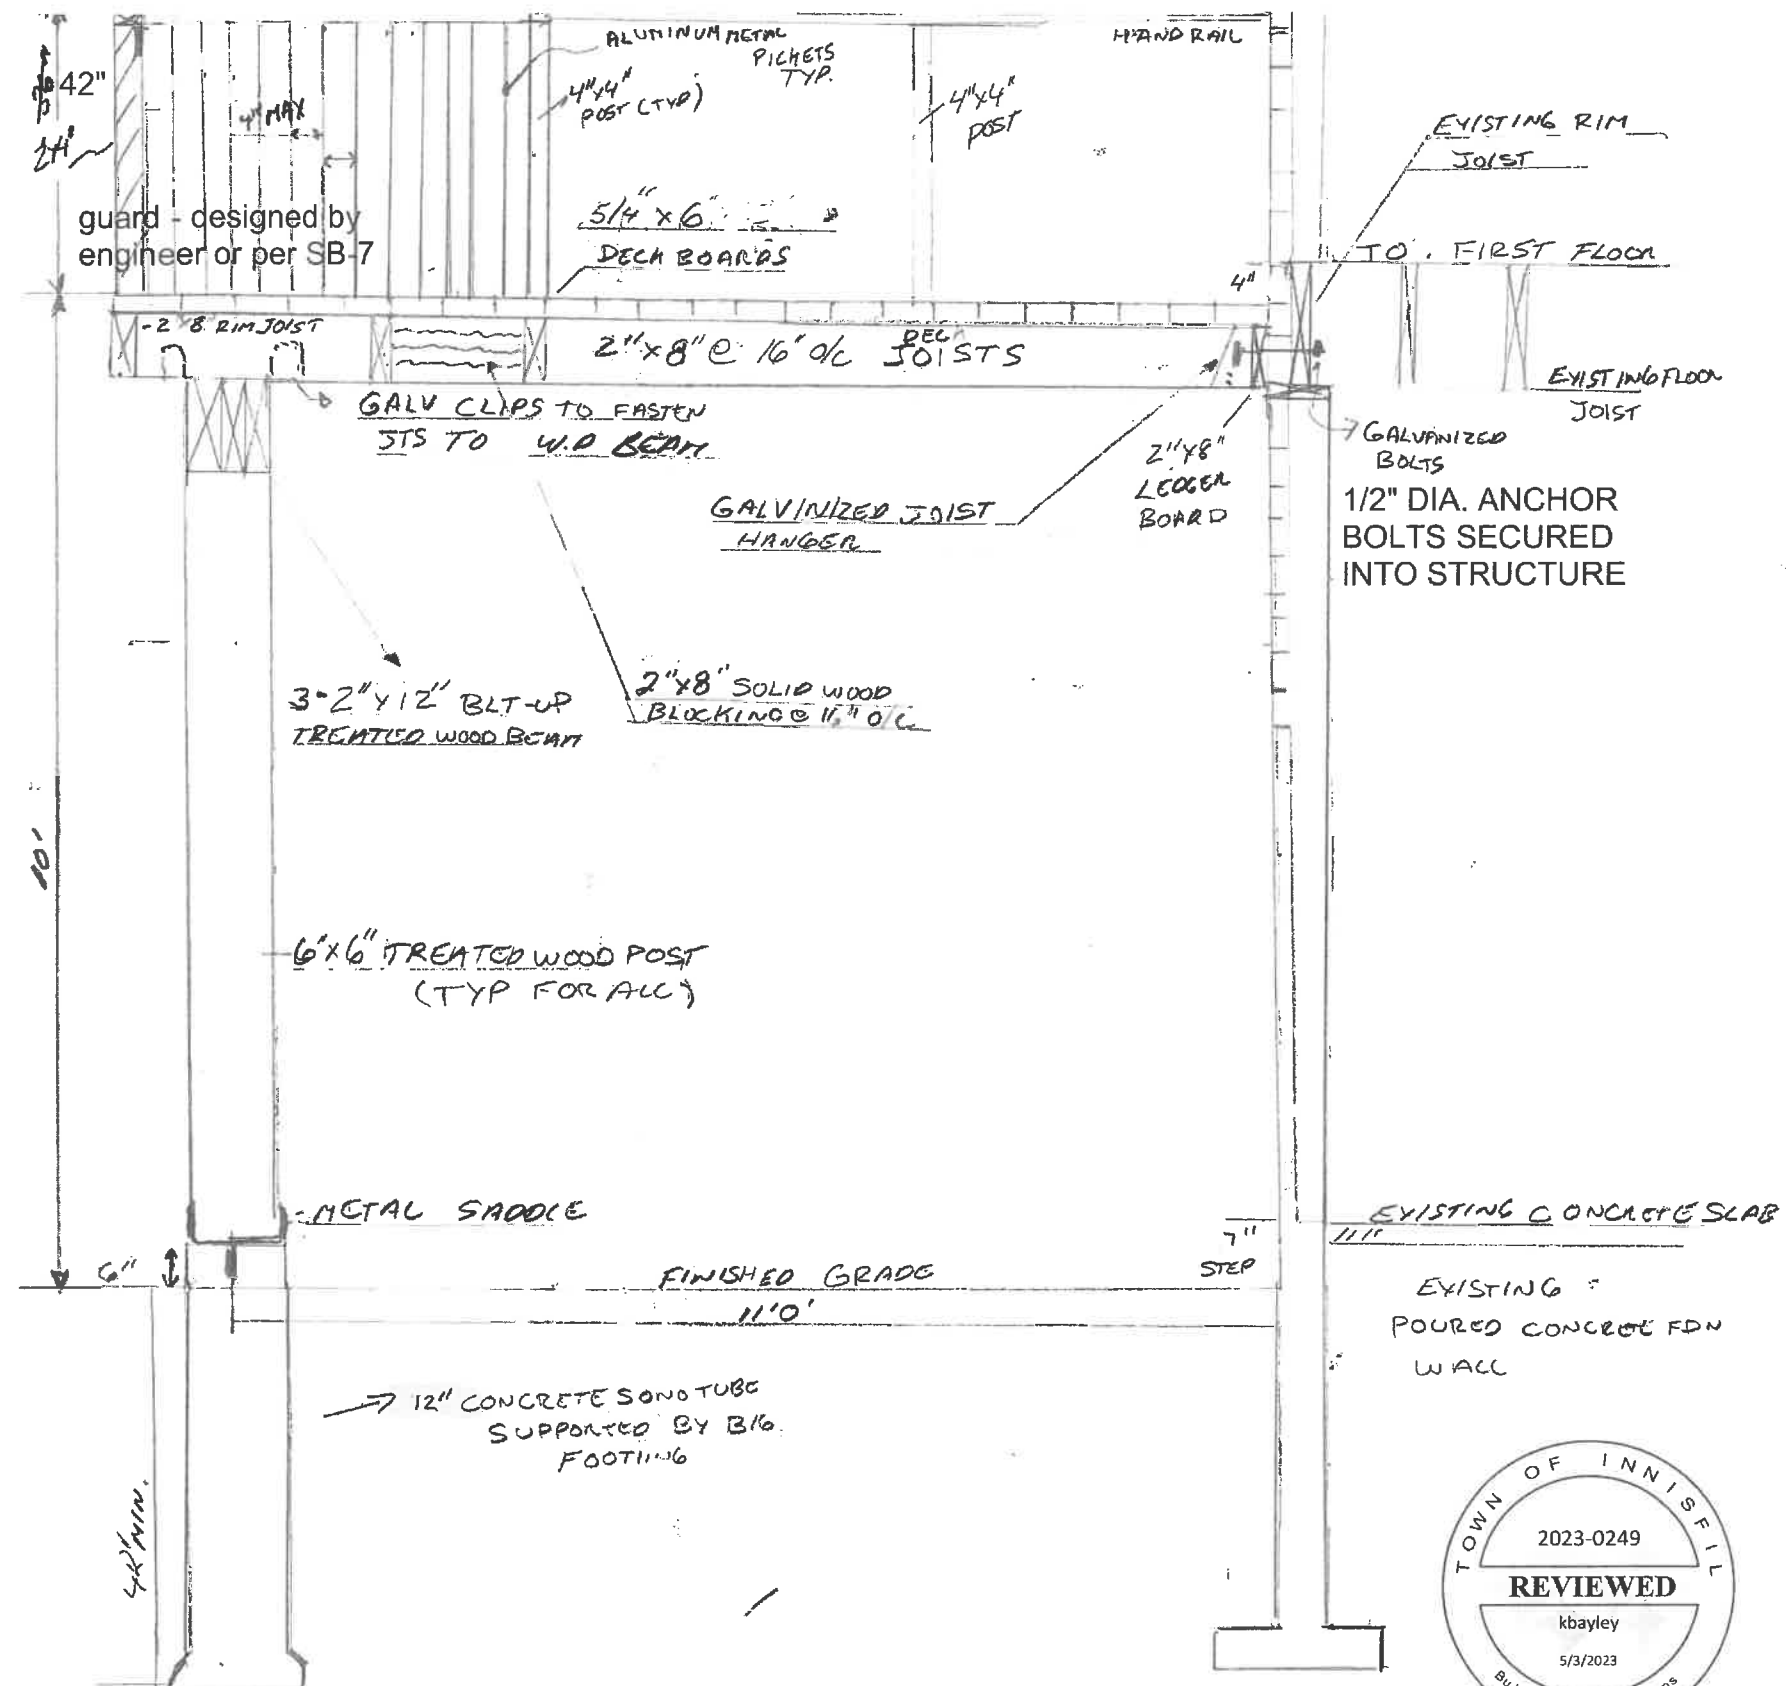 ALUMINUM METAL
PICKETS
TYP.
HAND RAIL
42"
4" MAX
4"x4"
POST (TYP)
4"x4"
POST
EXISTING RIM
JOIST
guard - designed by
engineer or per SB-7
5/4" x 6"
DECK BOARDS
TO. FIRST FLOOR
4"
-2 8 RIM JOIST
2"x8" @ 16' O/C DECK JOISTS
EXISTING FLOOR
JOIST
GALV CLIPS TO FASTEN
JTS TO W.D BEAM
GALVANIZED
BOLTS
2"x8"
LEDGER
BOARD
1/2" DIA. ANCHOR
BOLTS SECURED
INTO STRUCTURE
GALVINIZED JOIST
HANGER
3-2"x12" BLT-UP
TREATED WOOD BEAM
2"x8" SOLID WOOD
BLOCKING @ O/C
10'
6"x6" TREATED WOOD POST
(TYP FOR ALL)
METAL SADDLE
EXISTING CONCRETE SLAB
7"
STEP
6"
FINISHED GRADE
11'0'
EXISTING
POURED CONCREE FDN
WALL
12" CONCRETE SONOTUBE
SUPPORTED BY B16
FOOTING
MIN.
TOWN OF INNISFIL
2023-0249
REVIEWED
kbayley
5/3/2023